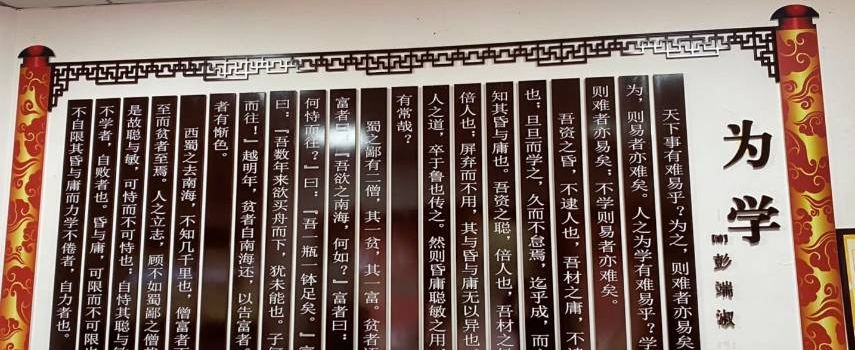 为学
彭端淑
天下事有难易乎?为之,则难者亦易矣
为,则易者亦难矣。人之为学有难易乎?学
则难者亦易矣;不学则易者亦难矣。
吾资之昏,不逮人也,吾材之庸,不逮
也;旦旦而学之,久而不怠焉,迄乎成,而
知其昏与庸也。吾资之聪,倍人也,吾材之
倍人也;屏弃而不用,其与昏与庸无以异也
人之道,卒于鲁也传之。然则昏庸聪敏之用
有常哉?
蜀之鄙有二僧,其一贫,其一富。贫者语
富者曰:『吾欲之南海,何如?』富者曰:
何恃而往?』曰:『吾一瓶一钵足矣。』富
曰:『吾数年来欲买舟而下,犹未能也。子何
而往!』越明年,贫者自南海还,以告富者
者有惭色。
西蜀之去南海,不知几千里也,僧富者不
至而贫者至焉。人之立志,顾不如蜀鄙之僧哉
是故聪与敏,可恃而不可恃也;自恃其聪与敏
不学者,自败者也。昏与庸,可限而不可限也
不自限其昏与庸而力学不倦者,自力者也。